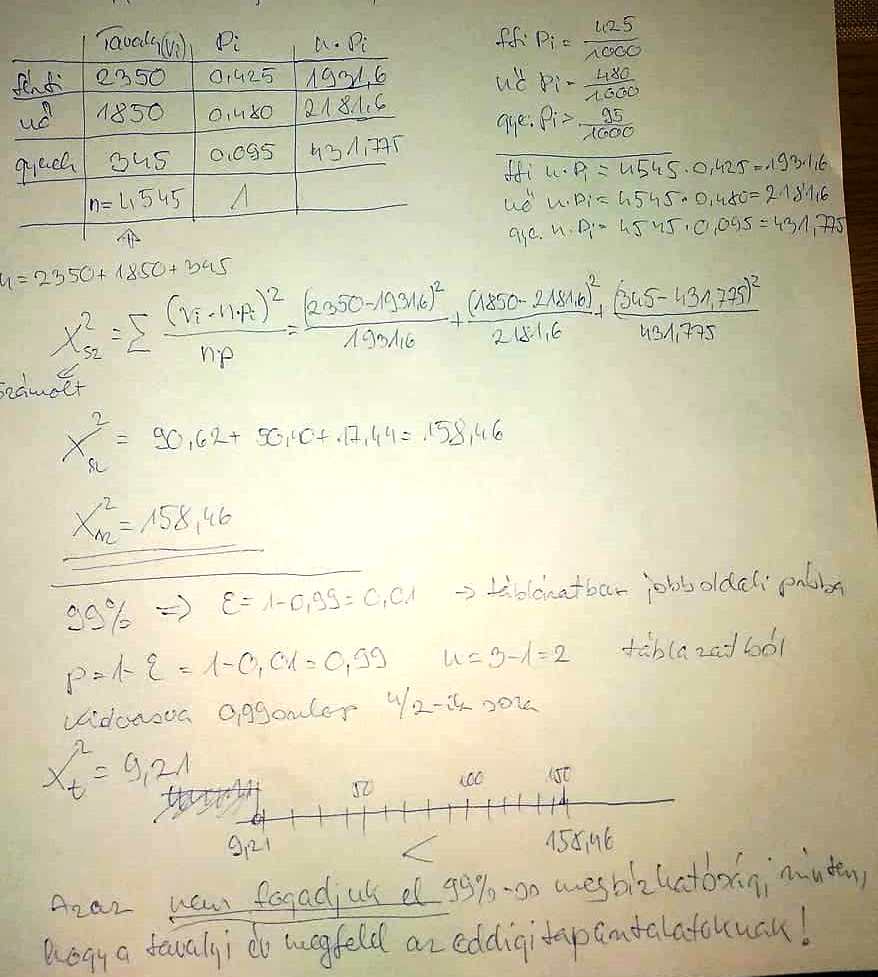 Tavaly(νi) Pi n·Pi
férfi 2350 0,425 1931,6
nő 1850 0,480 2181,6
gyerek 345 0,095 431,775
n=4545 1
ffi Pi = 425/1000
nő Pi = 480/1000
gye. Pi = 95/1000
ffi n·Pi = 4545·0,425=1931,6
nő n·Pi = 4545·0,480=2181,6
gye. n·Pi = 4545·0,095=431,775
n=2350+1850+345
X²sz = Σ (νi-n·pi)²/n·p = (2350-1931,6)²/1931,6 + (1850-2181,6)²/2181,6 + (345-431,775)²/431,775
számolt
X²sz = 90,62+50,40+17,44=158,46
X²sz=158,46
99% => ε=1-0,99=0,01 → táblázatban jobboldali próba
p=1-ε=1-0,01=0,99 n=3-1=2 táblázatból
kiolvasva 0,99 oszlop n/2-ik sora
X²t=9,21
50 100 150
9,21 < 158,46
Azaz nem fogadjuk el 99%-os megbízhatósági szinten,
hogy a tavalyi év megfelel az eddigi tapasztalatoknak!